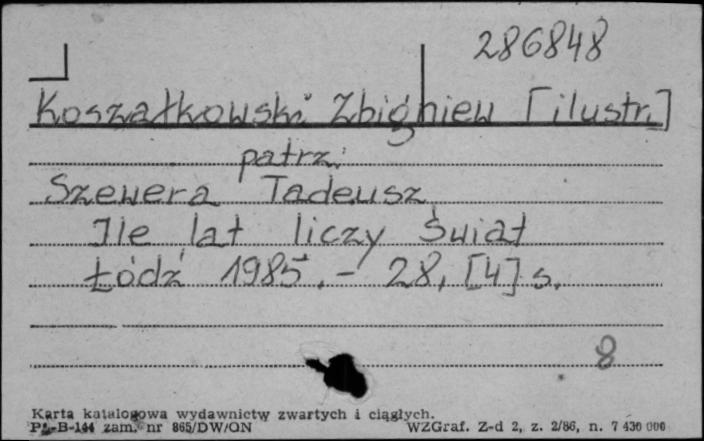 286848
Koszałkowski Zbigniew [ilustr.]
patrz:
Szewera Tadeusz
Ile lat liczy świat
Łódź 1985. – 28, [4] s.
8
Karta katalogowa wydawnictw zwartych i ciągłych.
Pu-B-144 zam. nr 865/DW/ON WZGraf. Z-d 2, z. 2/86, n. 7 430 000